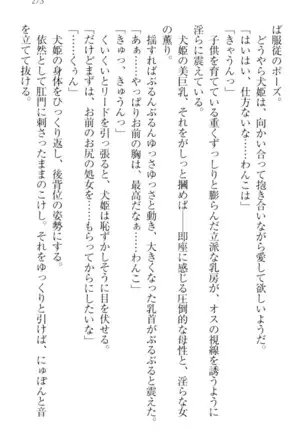 273
ば服従のポーズ。
どうやら犬姫は、向かい合って抱き合いながら愛して欲しいようだ。
「はいはい、仕方ないな……わんこは」
「きゃうんっ」
子供を育てている重くずっしりと膨らんだ立派な乳房が、オスの視線を誘うように
淫らに震えている。
犬姫の美巨乳、それをがしっと掴めば――即座に感じる圧倒的な母性と、淫らな女
の薫り。
揺すればぶるんぶるんゆっさゆっさと動き、大きくなった乳首がぷるぷると震える。
「あぁ……やっぱりお前の胸は、最高だなぁ……わんこ」
「きゅっ、きゅうんっ」
くいくいとリードを引っ張ると、犬姫は恥ずかしそうに目を伏せる。
「だけどまずは、お前のお尻の処女を……もらってからにしたいな」
「……くぅん」
犬姫の身体をひっくり返し、後背位の姿勢にする。
依然として肛門に刺さったままのこけし。それをゆっくりと引けば、にゅぽんと音
を立てて抜ける。